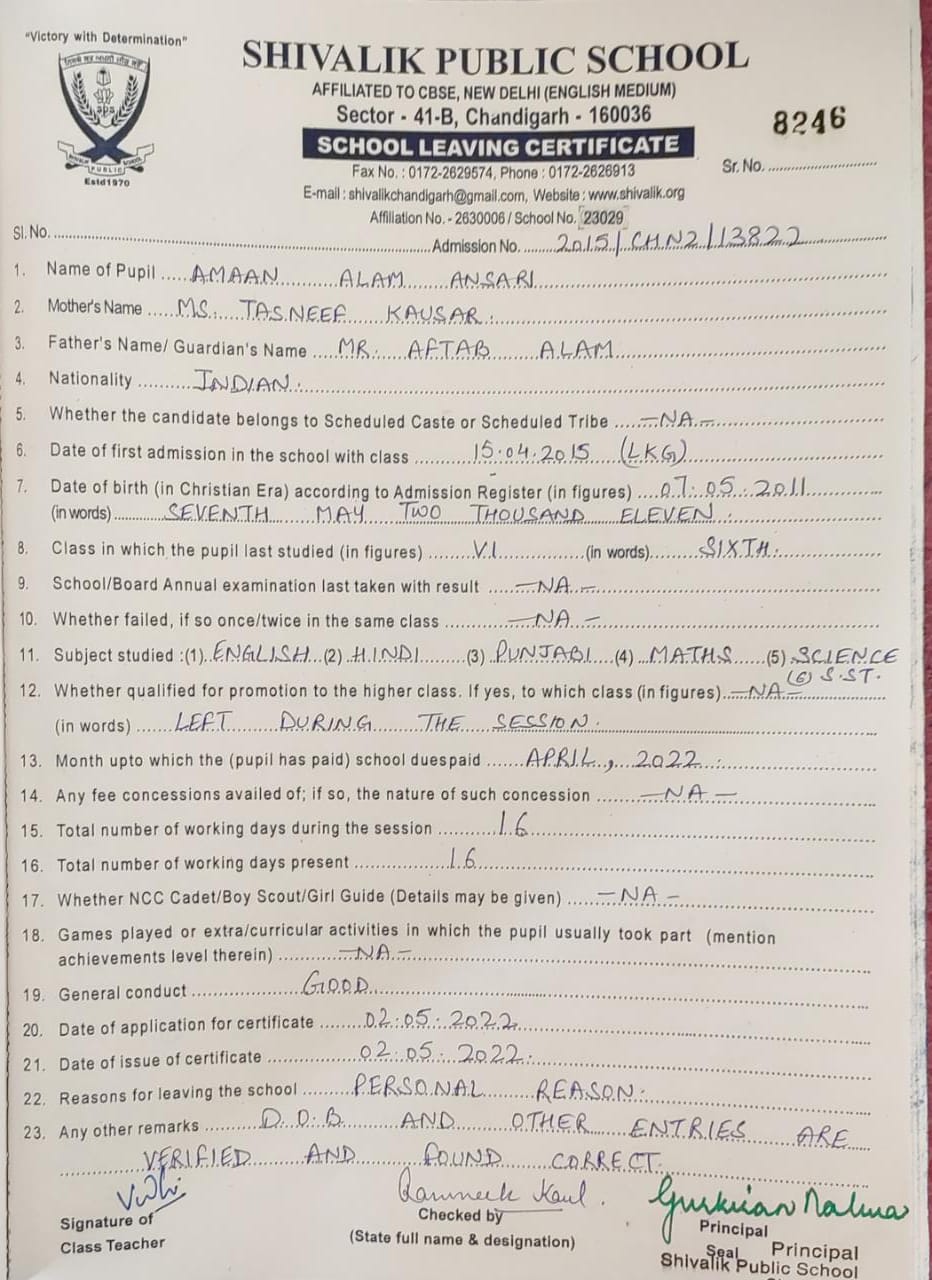 "Victory with Determination"
SHIVALIK PUBLIC SCHOOL
AFFILIATED TO CBSE, NEW DELHI (ENGLISH MEDIUM)
Sector - 41-B, Chandigarh - 160036
8246
SCHOOL LEAVING CERTIFICATE
Sr. No. ..........
Fax No. : 0172-2629574, Phone : 0172-2626913
PUBLIC
Estd1970
E-mail : shivalikchandigarh@gmail.com, Website : www.shivalik.org
Affiliation No. - 2630006 / School No. 23029
Sl. No. .......... Admission No. 2015/CHN2/13822
1. Name of Pupil AMAAN ALAM ANSARI
2. Mother's Name MS. TASNEEF KAUSAR.
3. Father's Name/ Guardian's Name MR. AFTAB ALAM
4. Nationality INDIAN.
5. Whether the candidate belongs to Scheduled Caste or Scheduled Tribe -NA-
6. Date of first admission in the school with class 15.04.2015 (LKG)
7. Date of birth (in Christian Era) according to Admission Register (in figures) 07.05.2011
(in words) SEVENTH MAY TWO THOUSAND ELEVEN.
8. Class in which the pupil last studied (in figures) VI (in words) SIXTH.
9. School/Board Annual examination last taken with result -NA-
10. Whether failed, if so once/twice in the same class -NA-
11. Subject studied :(1) ENGLISH (2) HINDI (3) PUNJABI (4) MATHS (5) SCIENCE
(6) S.ST.
12. Whether qualified for promotion to the higher class. If yes, to which class (in figures) -NA-
(in words) LEFT DURING THE SESSION.
13. Month upto which the (pupil has paid) school duespaid APRIL, 2022.
14. Any fee concessions availed of; if so, the nature of such concession -NA-
15. Total number of working days during the session 16
16. Total number of working days present 16
17. Whether NCC Cadet/Boy Scout/Girl Guide (Details may be given) -NA-
18. Games played or extra/curricular activities in which the pupil usually took part (mention
achievements level therein) -NA-
19. General conduct GOOD
20. Date of application for certificate 02.05.2022
21. Date of issue of certificate 02.05.2022.
22. Reasons for leaving the school PERSONAL REASON.
23. Any other remarks D.O.B AND OTHER ENTRIES ARE
VERIFIED AND FOUND CORRECT.
Ramneek Kaul.
Signature of
Class Teacher
Checked by
(State full name & designation)
Principal
Seal Principal
Shivalik Public School